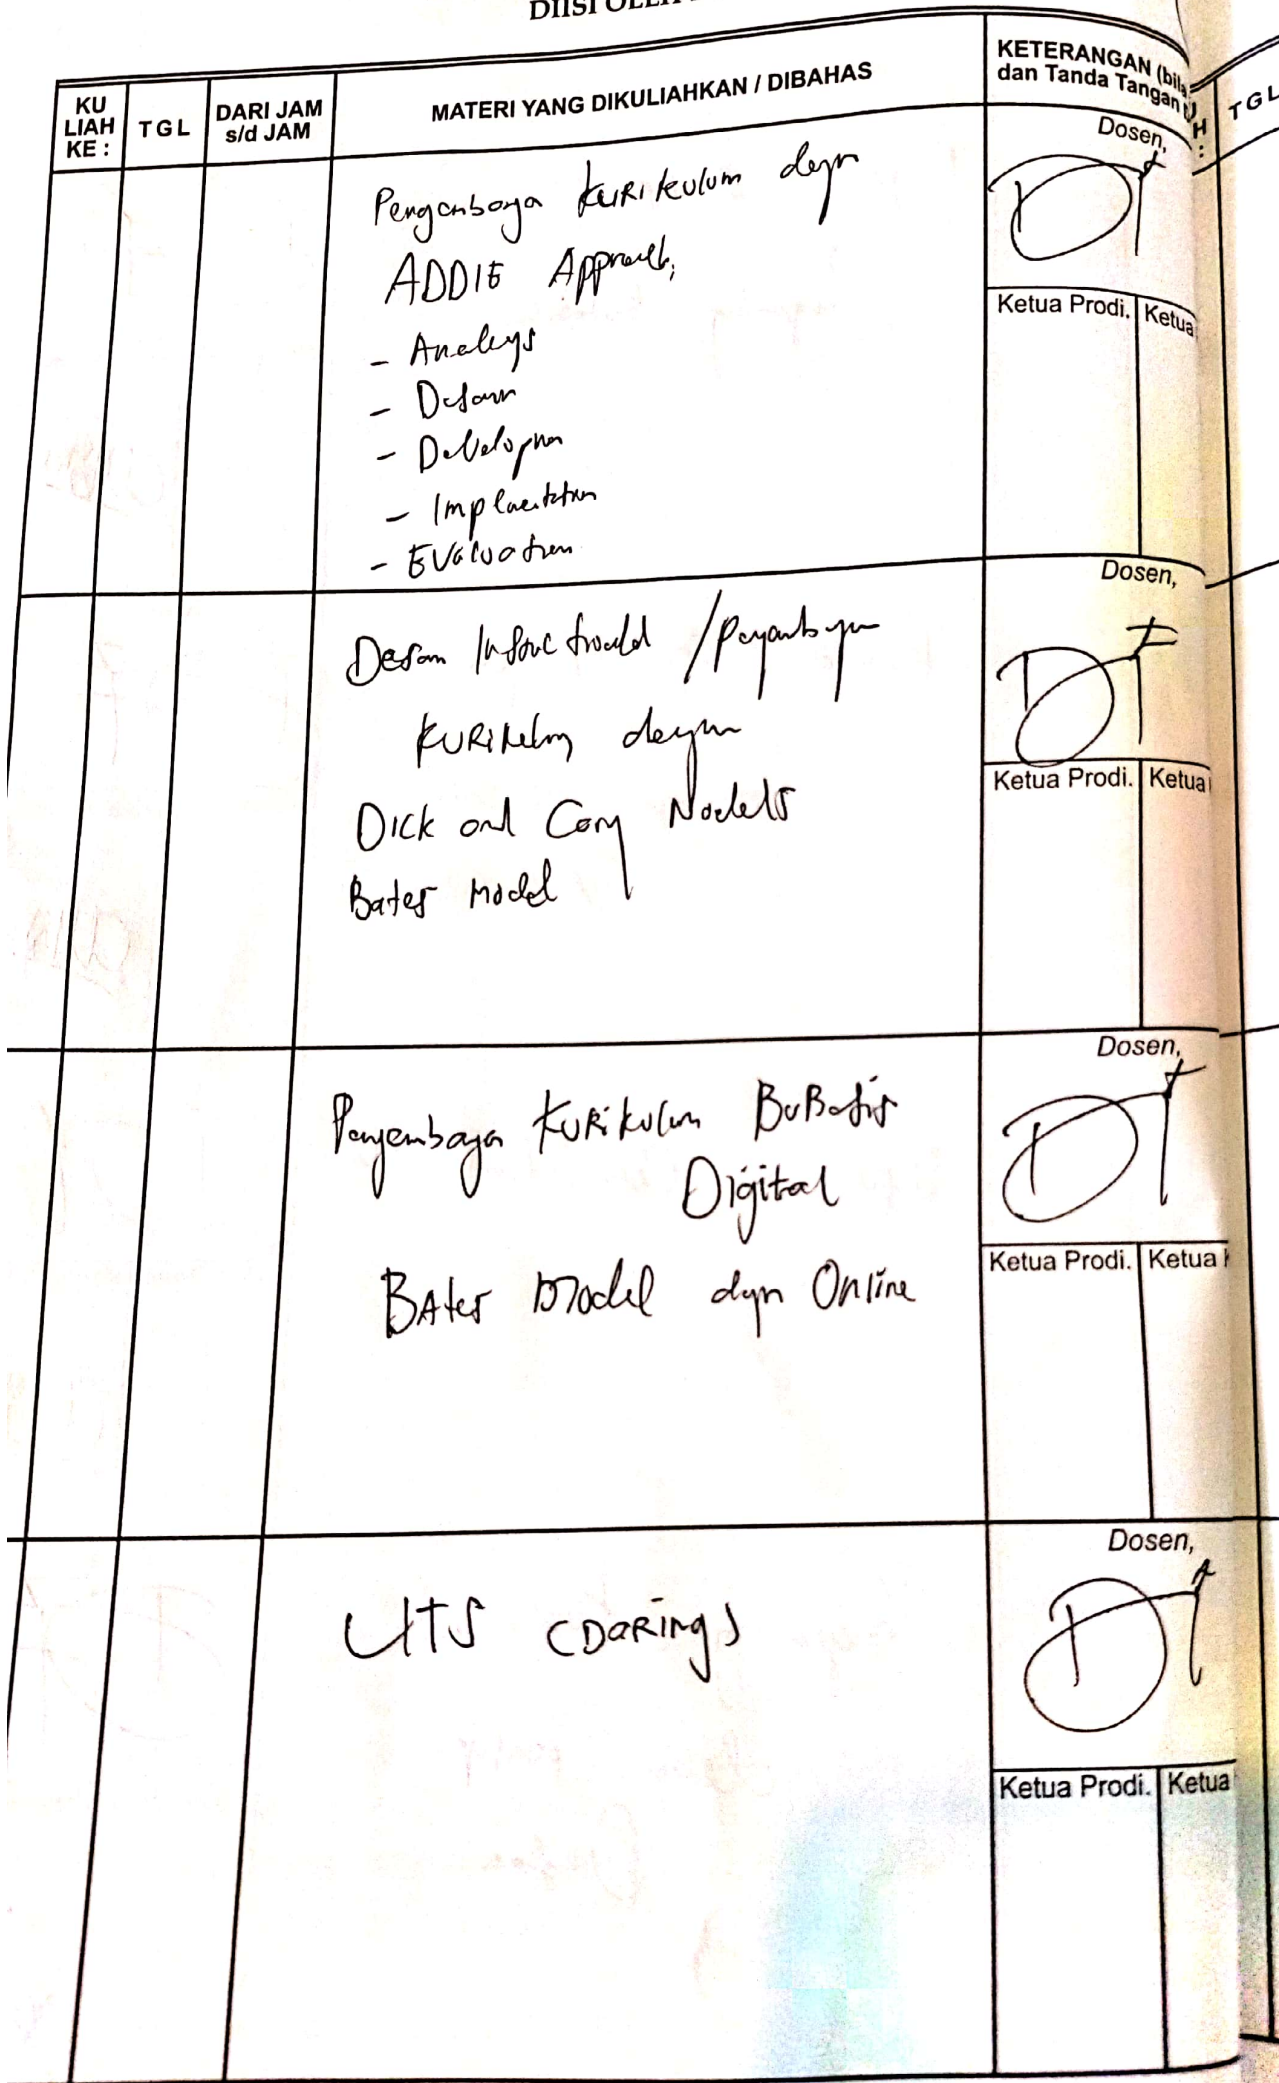 DIISI OLEH
KU
LIAH
KE :
TGL
DARI JAM
s/d JAM
MATERI YANG DIKULIAHKAN / DIBAHAS
KETERANGAN (bila
dan Tanda Tangan
H
:
TGL
Pengembaga KURikulum degn
ADDIE Approach,
- Analys
- Desain
- Developmen
- Implementation
- Evaluation
Dosen,
Ketua Prodi.
Ketua
Desain Instructional /
KURikulum dengan
Dick and Cary Models
Bates Model
Dosen,
Ketua Prodi.
Ketua
Pengembaga KURikulum BerBasis
Digital
BAtes Model dgn Online
Dosen,
Ketua Prodi.
Ketua
UTS (DaRing)
Dosen,
Ketua Prodi.
Ketua